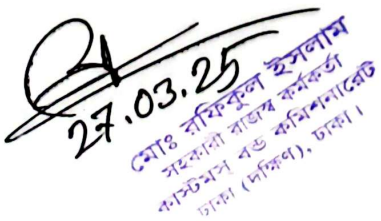 27.03.25
মোঃ রফিকুল ইসলাম
সহকারী রাজস্ব কর্মকর্তা
কাস্টমস বন্ড কমিশনারেট
ঢাকা (দক্ষিণ), ঢাকা।